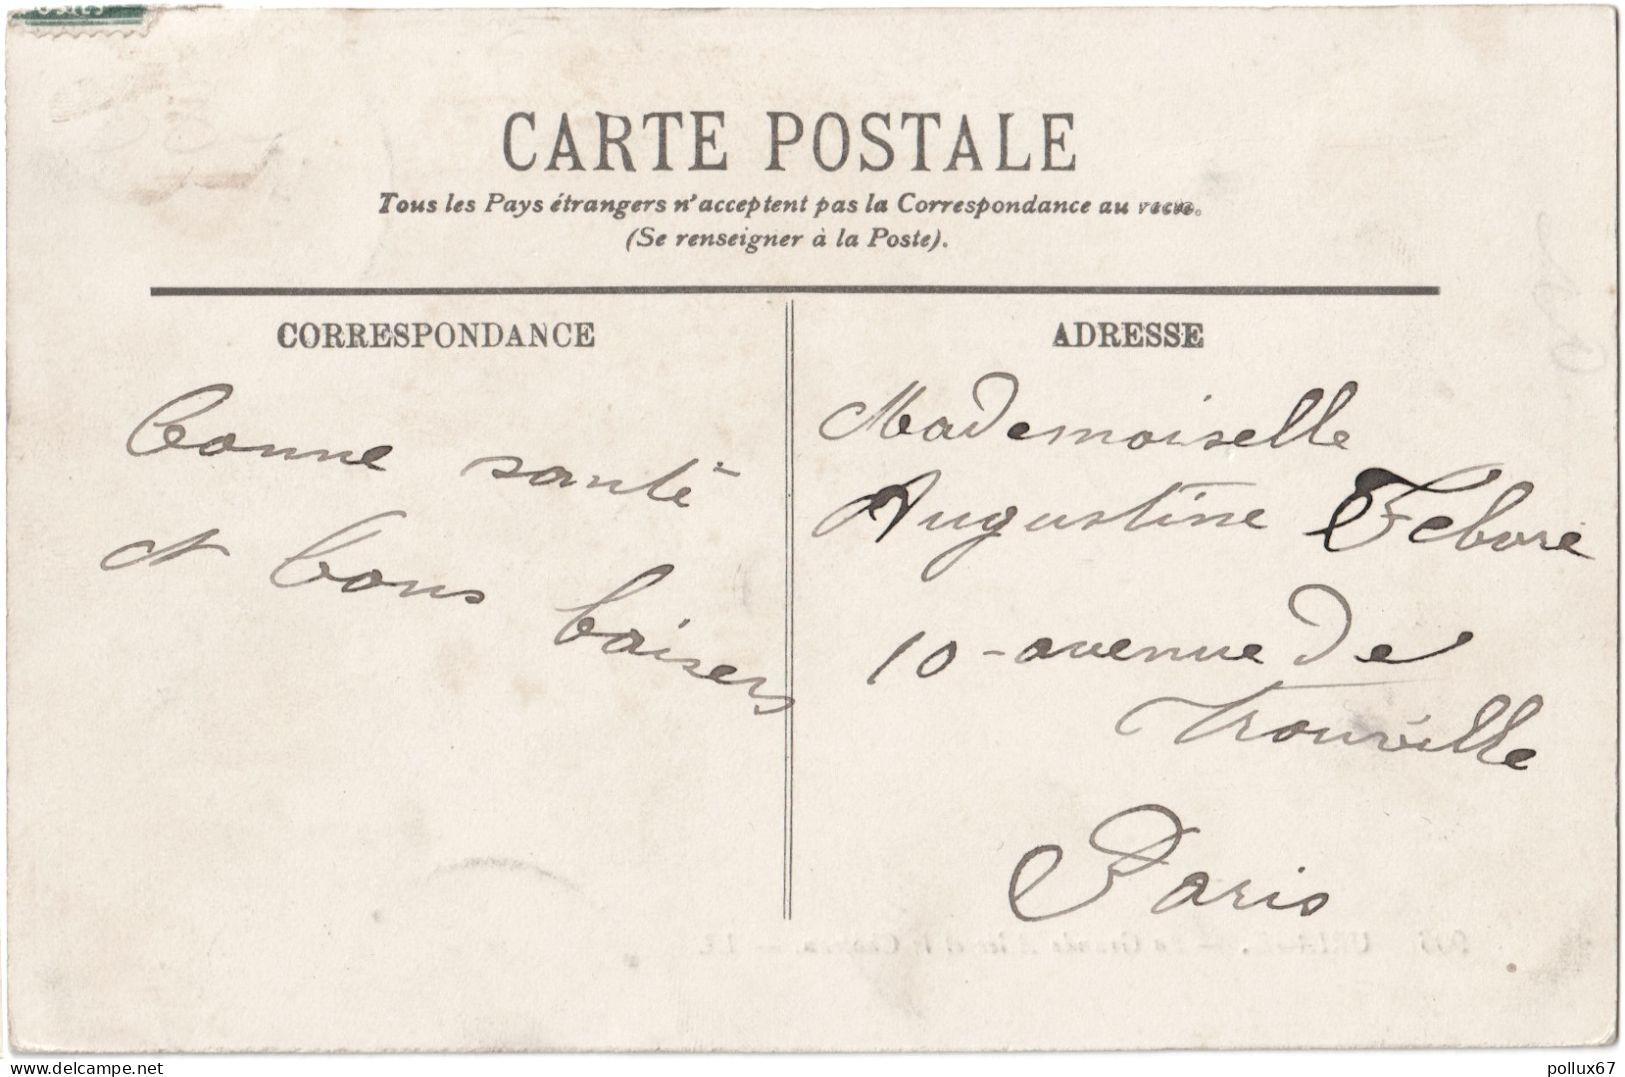 CARTE POSTALE
Tous les Pays étrangers n'acceptent pas la Correspondance au recto.
(Se renseigner à la Poste).
CORRESPONDANCE
ADRESSE
bonne santé
et bons baisers
Mademoiselle
Augustine Febvre
10 - avenue de
Trouville
Paris
delcampe.net
pollux67